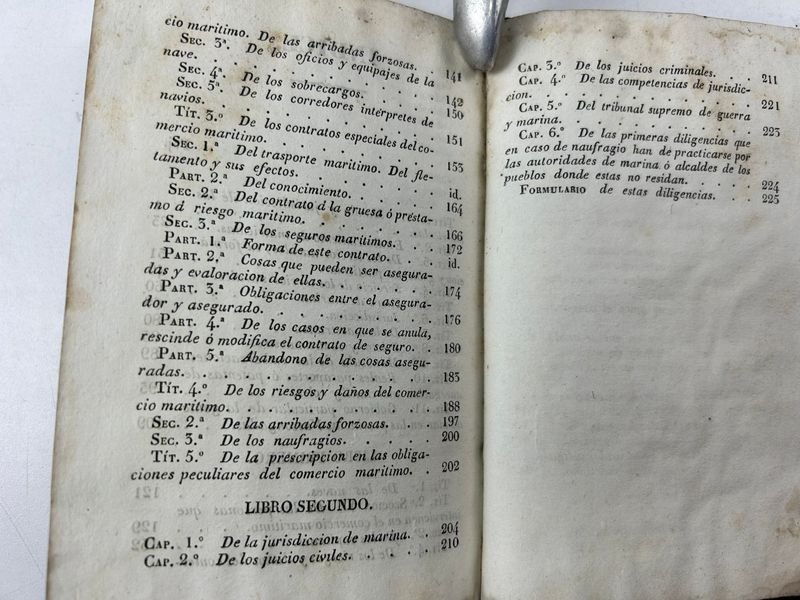 cio maritimo. De las arribadas forzosas. . 141
Sec. 3.ª De los oficios y equipajes de la
nave. . . . . . . . . . . . . 142
Sec. 4.ª De los sobrecargos. . . . . . 150
Sec. 5.ª De los corredores intérpretes de
navios. . . . . . . . . . . . 151
Tít. 3.º De los contratos especiales del co-
mercio maritimo. . . . . . . . . 153
Sec. 1.ª Del trasporte maritimo. Del fle-
tamento y sus efectos. . . . . . . id.
Part. 2.ª Del conocimiento. . . . . . 164
Sec. 2.ª Del contrato á la gruesa ó présta-
mo á riesgo maritimo. . . . . . . 166
Sec. 3.ª De los seguros maritimos. . . . 172
Part. 1.ª Forma de este contrato. . . . id.
Part. 2.ª Cosas que pueden ser asegura-
das y evaloracion de ellas. . . . . . 174
Part. 3.ª Obligaciones entre el asegura-
dor y asegurado. . . . . . . . . 176
Part. 4.ª De los casos en que se anula,
rescinde ó modifica el contrato de seguro. . 180
Part. 5.ª Abandono de las cosas asegu-
radas. . . . . . . . . . . . . 185
Tít. 4.º De los riesgos y daños del comer-
cio maritimo. . . . . . . . . . . 188
Sec. 2.ª De las arribadas forzosas. . . . 197
Sec. 3.ª De los naufragios. . . . . . 200
Tít. 5.º De la prescripcion en las obliga-
ciones peculiares del comercio maritimo. . 202
LIBRO SEGUNDO.
Cap. 1.º De la jurisdiccion de marina. . . 204
Cap. 2.º De los juicios civiles. . . . . 210
Cap. 3.º De los juicios criminales. . . . 211
Cap. 4.º De las competencias de jurisdic-
cion. . . . . . . . . . . . . 221
Cap. 5.º Del tribunal supremo de guerra
y marina. . . . . . . . . . . . 223
Cap. 6.º De las primeras diligencias que
en caso de naufragio han de practicarse por
las autoridades de marina ó alcaldes de los
pueblos donde estas no residan. . . . . 224
Formulario de estas diligencias. . . . 225